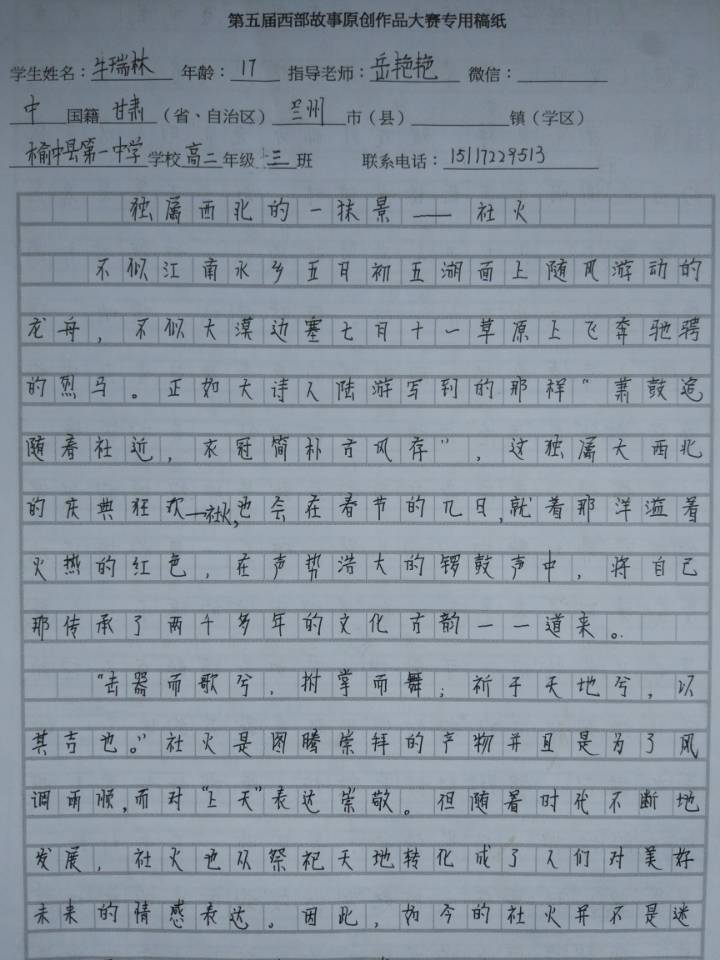 第五届西部故事原创作品大赛专用稿纸
学生姓名：牛瑞林 年龄：17 指导老师：岳艳艳 微信：
中 国籍 甘肃（省、自治区） 兰州 市（县） 镇（学区）
榆中县第一中学 学校 高二 年级 十三 班 联系电话：15117229513
独属西北的一抹景——社火
不似江南水乡五月初五湖面上随风游动的
龙舟，不似大漠边塞七月十一草原上飞奔驰骋
的烈马。正如大诗人陆游写到的那样“萧鼓追
随春社近，衣冠简朴古风存”，这独属大西北
的庆典狂欢—社火，也会在春节的几日，就着那洋溢着
火热的红色，在声势浩大的锣鼓声中，将自己
那传承了两千多年的文化古韵一一道来。
“击器而歌兮，拊掌而舞；祈于天地兮，以
其吉也。”社火是图腾崇拜的产物并且是为了风
调雨顺，而对“上天”表达崇敬。但随着时代不断地
发展，社火也从祭祀天地转化成了人们对美好
未来的情感表达。因此，如今的社火并不是迷